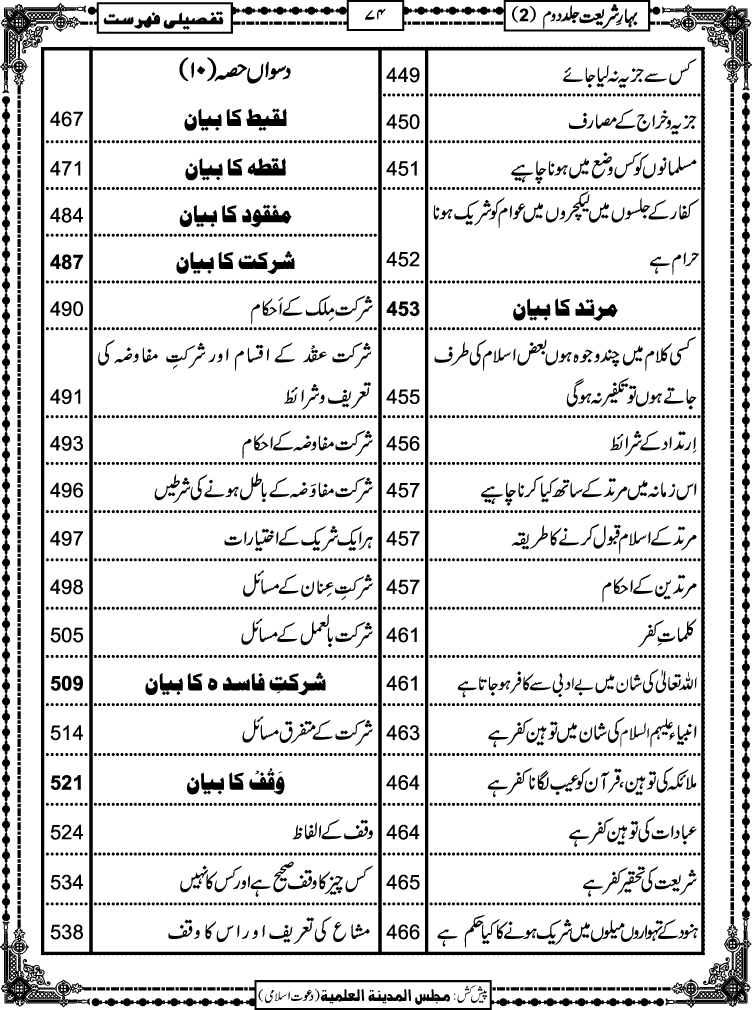 بہارِشریعت جلد دوم (2)
۷۴
تفصیلی فہرست
کس سے جزیہ نہ لیا جائے 449
جزیہ و خراج کے مصارف 450
مسلمانوں کو کس وضع میں ہونا چاہیے 451
کفار کے جلسوں میں لیکچروں میں عوام کو شریک ہونا
حرام ہے 452
مرتد کا بیان 453
کسی کلام میں چند وجوہ ہوں بعض اسلام کی طرف
جاتے ہوں تو تکفیر نہ ہوگی 455
اِرتداد کے شرائط 456
اس زمانہ میں مرتد کے ساتھ کیا کرنا چاہیے 457
مرتد کے اسلام قبول کرنے کا طریقہ 457
مرتدین کے احکام 457
کلماتِ کفر 461
اللہ تعالیٰ کی شان میں بے ادبی سے کافر ہو جاتا ہے 461
انبیاء علیہم السلام کی شان میں توہین کفر ہے 463
ملائکہ کی توہین، قرآن کو عیب لگانا کفر ہے 464
عبادات کی توہین کفر ہے 464
شریعت کی تحقیر کفر ہے 465
ہنود کے تہواروں میلوں میں شریک ہونے کا کیا حکم ہے 466
دسواں حصہ (۱۰)
لقیط کا بیان 467
لقطہ کا بیان 471
مفقود کا بیان 484
شرکت کا بیان 487
شرکت مِلک کے اَحکام 490
شرکت عقْد کے اقسام اور شرکتِ مفاوضہ کی
تعریف و شرائط 491
شرکت مفاوضہ کے احکام 493
شرکت مفاوَضہ کے باطل ہونے کی شرطیں 496
ہر ایک شریک کے اختیارات 497
شرکتِ عِنان کے مسائل 498
شرکت بالعمل کے مسائل 505
شرکتِ فاسدہ کا بیان 509
شرکت کے متفرق مسائل 514
وَقْف کا بیان 521
وقف کے الفاظ 524
کس چیز کا وقف صحیح ہے اور کس کا نہیں 534
مشاع کی تعریف اور اس کا وقف 538
پیش کش: مجلس المدینۃ العلمیۃ (دعوت اسلامی)